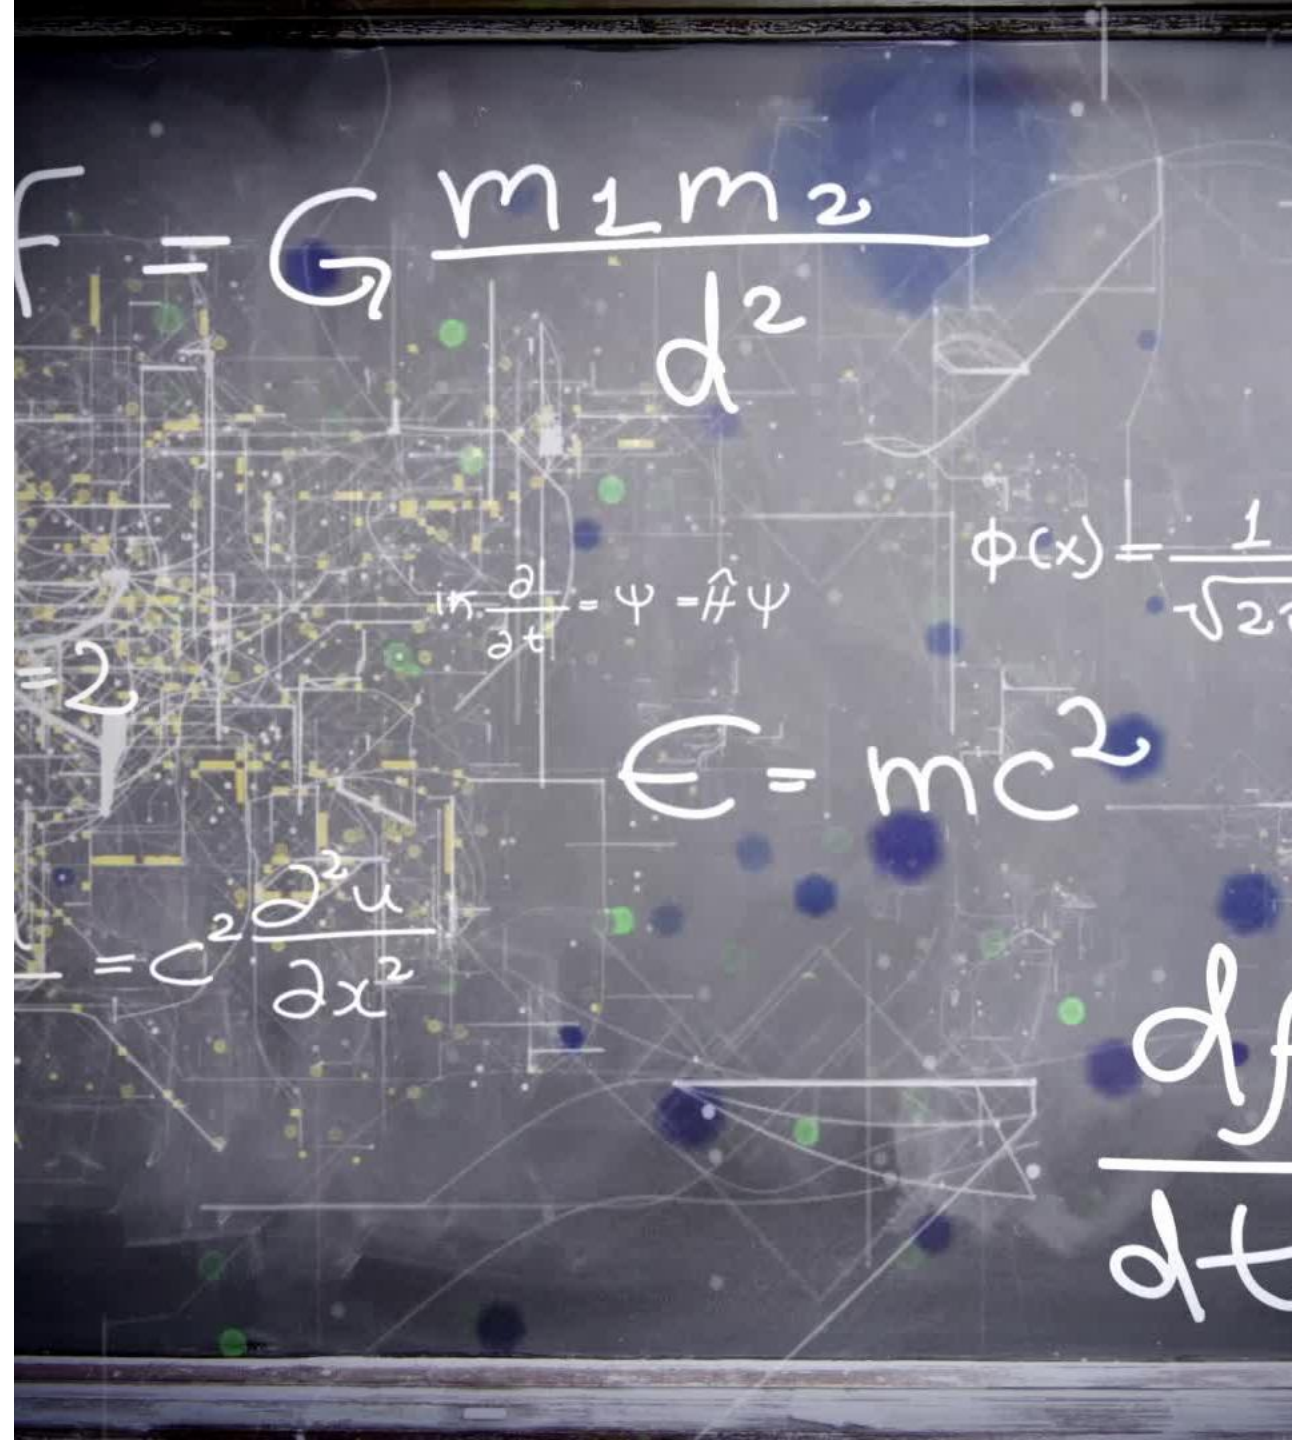 F = G m1m2/d²
ϕ(x) = 1/√2
iħ ∂/∂t = Ψ = ĤΨ
=2
E = mc²
= c² ∂²u/∂x²
df/dt